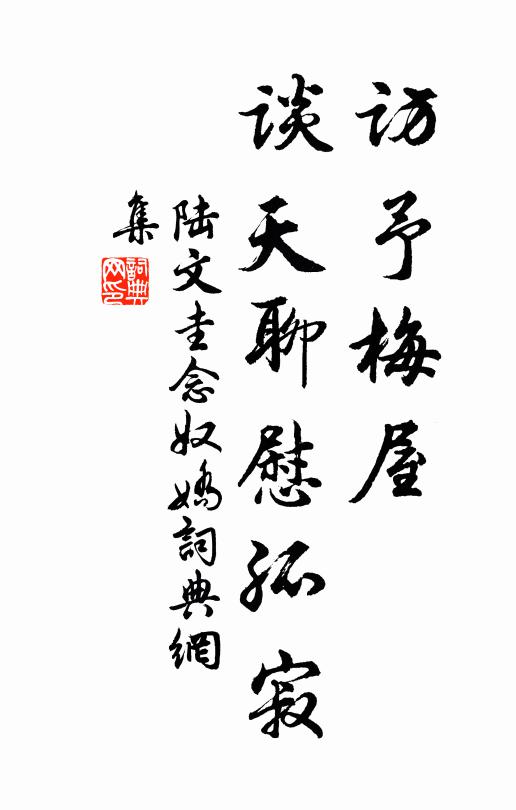 访予梅屋
谈天聊慰孤寂
陆文圭念奴娇詞典網
集
詞典网印